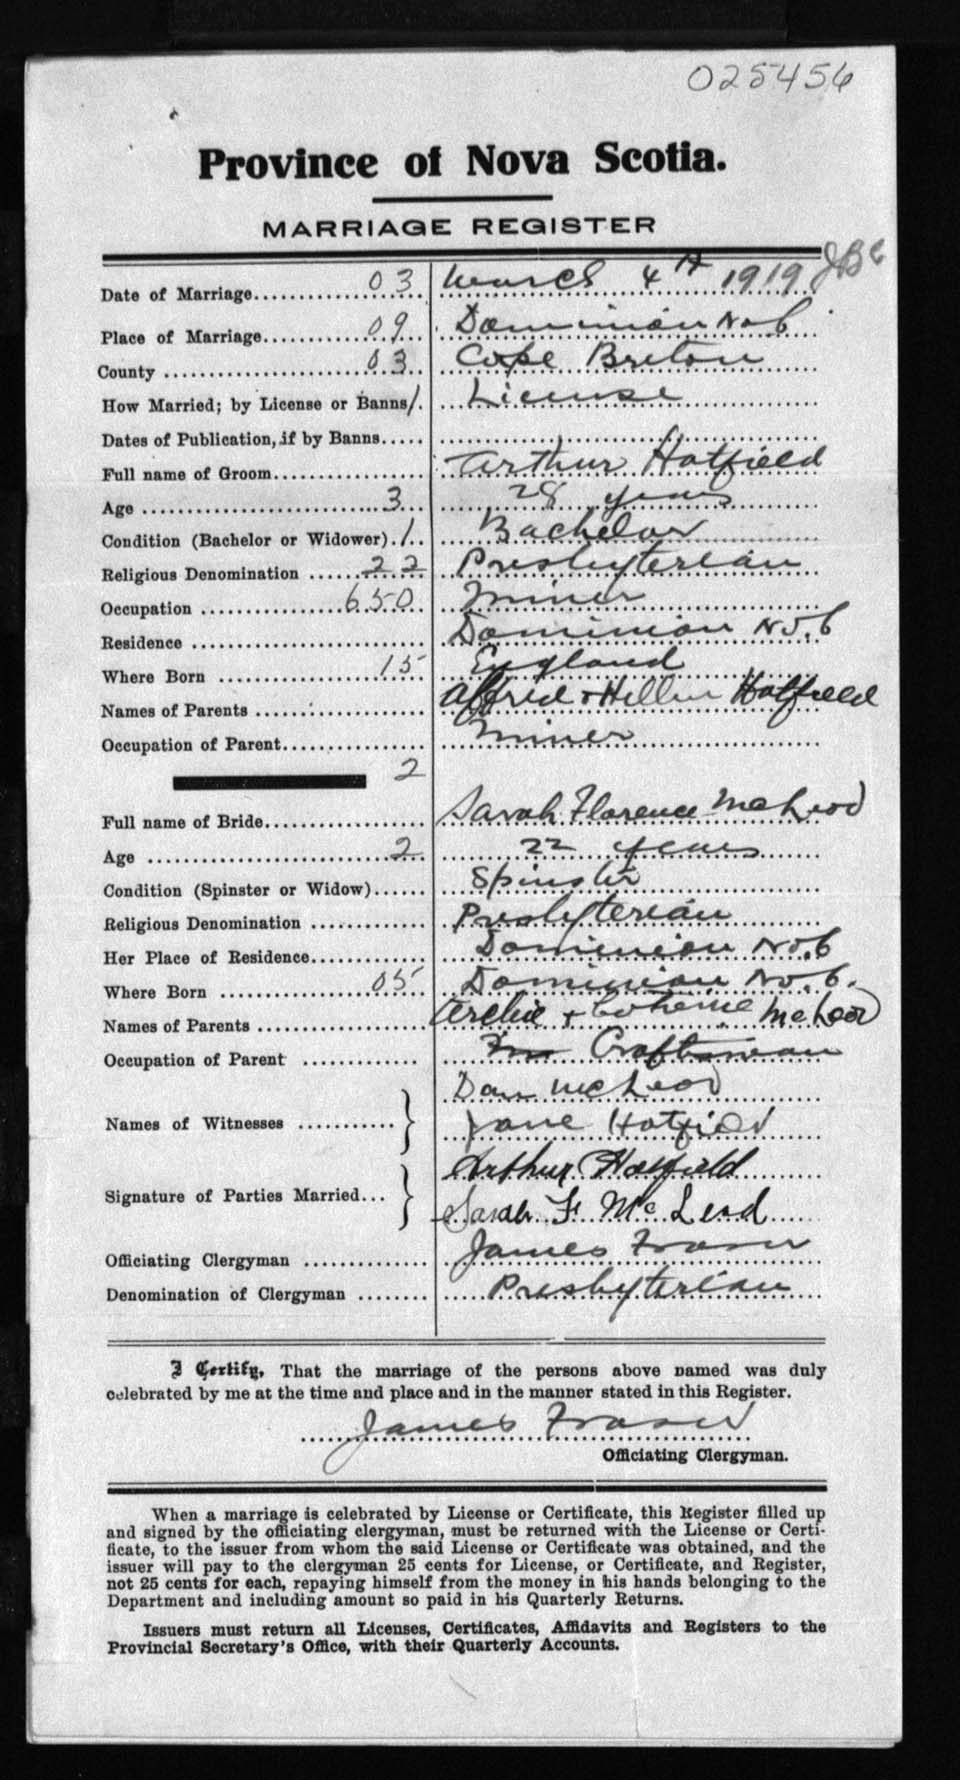 025456
Province of Nova Scotia.
MARRIAGE REGISTER
JBC
Date of Marriage 03 March 4th 1919
Place of Marriage 09 Dominion No 6
County 03 Cape Breton
How Married; by License or Banns 1 License
Dates of Publication, if by Banns
Full name of Groom Arthur Hatfield
Age 3 28 years
Condition (Bachelor or Widower) 1 Bachelor
Religious Denomination 22 Presbyterian
Occupation 650 Miner
Residence Dominion No. 6
Where Born 15 England
Names of Parents Alfred + Hellen Hatfield
Occupation of Parent Miner
2
Full name of Bride Sarah Florence McLeod
Age 2 22 years
Condition (Spinster or Widow) Spinster
Religious Denomination Presbyterian
Her Place of Residence Dominion No. 6
Where Born 05 Dominion No. 6.
Names of Parents Archie + McLeod
Occupation of Parent Craftsman
Names of Witnesses Dan McLeod
Jane Hatfield
Signature of Parties Married Arthur Hatfield
Sarah F McLeod
Officiating Clergyman James Fraser
Denomination of Clergyman Presbyterian
I Certify, That the marriage of the persons above named was duly
celebrated by me at the time and place and in the manner stated in this Register.
James Fraser
Officiating Clergyman.
When a marriage is celebrated by License or Certificate, this Register filled up
and signed by the officiating clergyman, must be returned with the License or Certi-
ficate, to the issuer from whom the said License or Certificate was obtained, and the
issuer will pay to the clergyman 25 cents for License, or Certificate, and Register,
not 25 cents for each, repaying himself from the money in his hands belonging to the
Department and including amount so paid in his Quarterly Returns.
Issuers must return all Licenses, Certificates, Affidavits and Registers to the
Provincial Secretary's Office, with their Quarterly Accounts.